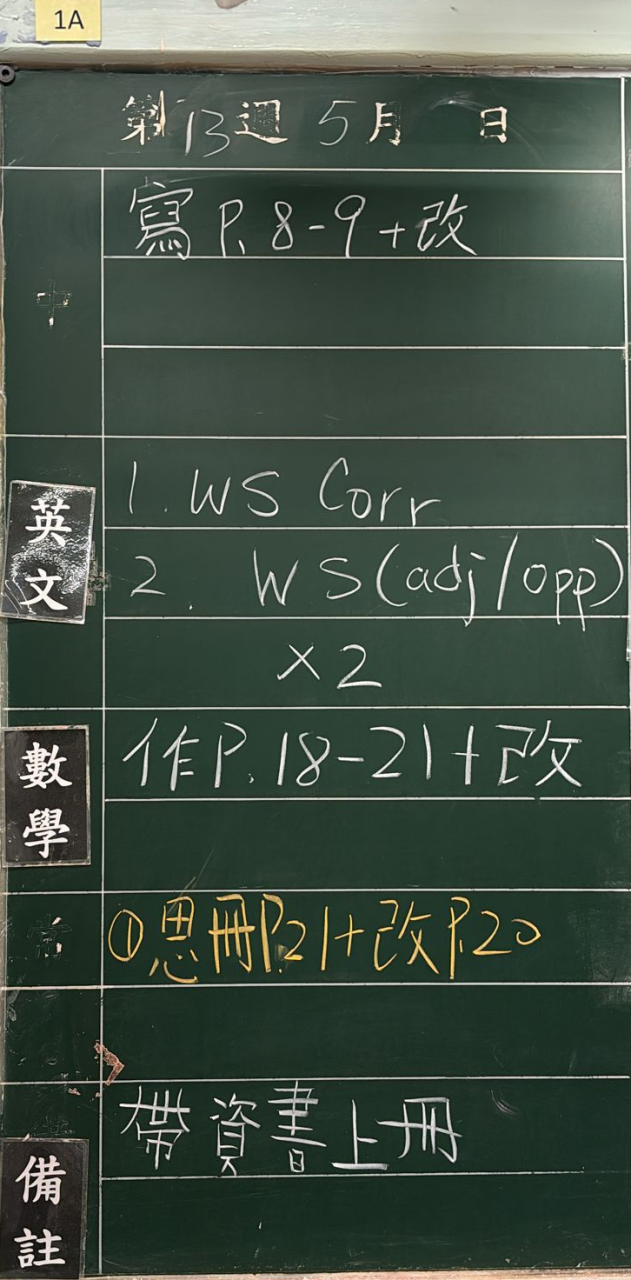 1A
第13週 5月 日
中
寫P.8-9+改
英文
1. WS Corr
2. WS(adj/opp)
×2
數學
作P.18-21+改
常
①思冊P.21+改P.20
備註
帶資書上冊